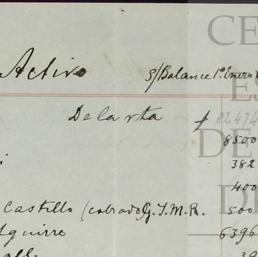 Activo s/Balance 1º Enero
De la vta $ 82474
8500
i 382
400
Castillo (cobrado G.I.M.R. 500
Aguirre 6396
CE
ES
DE
DE